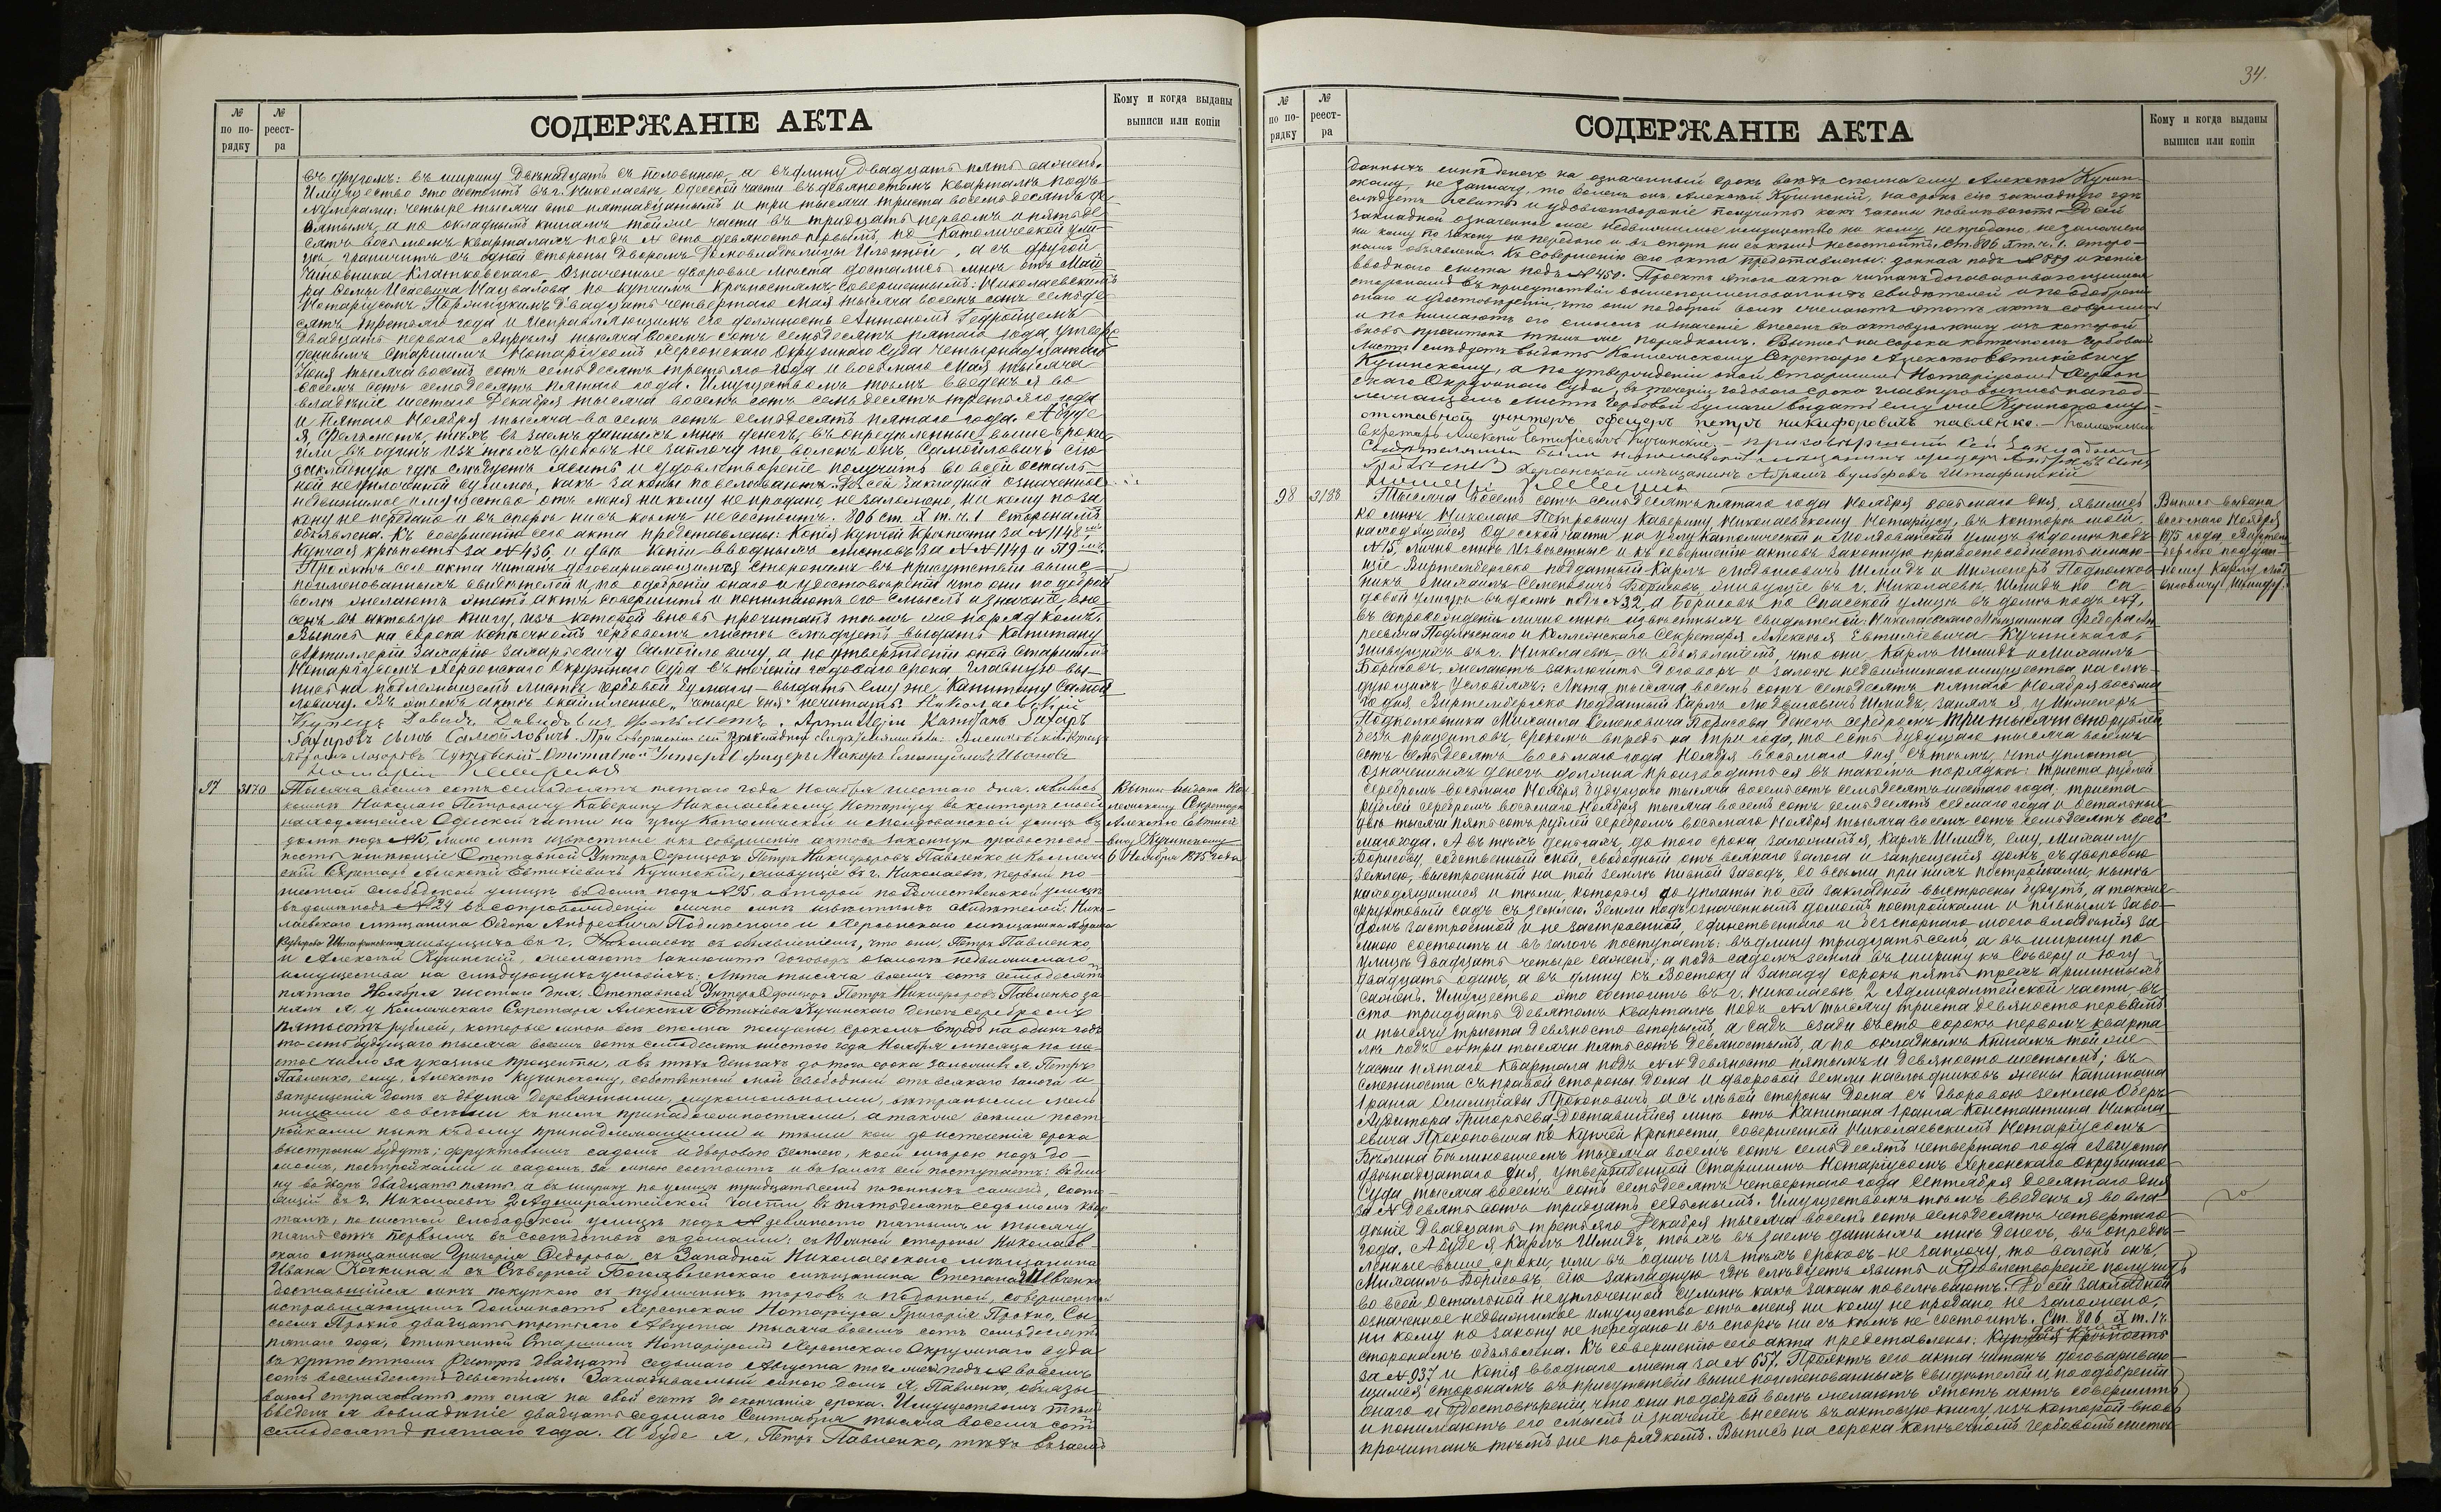 34.
№ по порядку
№ реестра
СОДЕРЖАНІЕ АКТА
Кому и когда выданы выписи или копіи
въ другомъ: въ ширину Двѣнадцать съ половиною, а въ длину Двадцать пять сажень.
Имущество это состоитъ въ г. Николаевѣ Одесской части въ девяностомъ кварталѣ подъ
нумерами: четыре тысячи сто пятнадцатымъ и три тысячи триста восемьдесятъ де
вятымъ, а по окладнымъ книгамъ той же части въ тридцать первомъ и пятьде
сятъ восьмомъ кварталахъ подъ № сто девяносто первымъ, по Католической ули
цѣ, граничитъ съ одной стороны Дворомъ Домовладѣлицы, а съ другой
Чиновника Означенные дворовые мѣста достались мнѣ отъ Май
ра Семы Исаевича по купчимъ крѣпостямъ совершеннымъ: Николаевскимъ
Нотаріусомъ Двадцать четвертаго Мая тысяча восемь сотъ семьде
сятъ третьяго года и исправляющимъ его должность Антономъ
Двадцать перваго Апрѣля тысяча восемь сотъ семьдесятъ пятаго года, утверж
деннымъ Старшимъ Нотаріусомъ Херсонскаго Окружнаго Суда четырнадцатаго
Іюня тысяча восемь сотъ семьдесятъ третьяго года и восьмаго Мая тысяча
восемь сотъ семьдесятъ пятаго года. Имуществомъ тѣмъ введенъ я во
владѣніе шестаго Декабря тысяча восемь сотъ семьдесятъ третьяго года
и Пятаго Ноября тысяча восемь сотъ семьдесятъ пятаго года. А буде
я, Фельзметъ, тѣхъ въ заемъ данныхъ мнѣ денегъ, въ опредѣленные выше сроки
или въ одинъ изъ тѣхъ сроковъ не заплачу то воленъ онъ, Самойловичъ сію
закладную гдѣ слѣдуетъ явить и удовлетвореніе получить во всей осталь
ной неуплоченной суммѣ, какъ законы повелѣваютъ. До сей закладной означенное
недвижимое имущество отъ меня никому не продано, не заложено, ни кому по за
кону не передано и въ спорѣ ни съ кѣмъ не состоитъ. 806 ст. X т. ч. 1 сторонамъ
объявлена. Къ совершенію сего акта представлены: Копія Купчей Крѣпости за № 1148,
купчая крѣпость за № 436, и двѣ копіи вводныхъ листовъ за №№ 1149 и
Проэктъ сего акта читанъ договаривающимся сторонамъ въ присутствіи выше
поименованныхъ свидѣтелей и, по одобреніи онаго и удостовѣреніи что они по доброй
волѣ желаютъ этотъ актъ совершить и понимаютъ его смыслъ и значеніе, вне
сенъ въ актовую книгу, изъ которой вновь прочитанъ тѣмъ же порядкомъ.
Выпись на сорока копѣечномъ гербовомъ листѣ слѣдуетъ выдать Капитану
Артиллеріи Захарію Захарьевичу Самойловичу, а по утвержденіи оной Старшимъ
Нотаріусомъ Херсонскаго Окружнаго Суда въ теченіи годоваго срока главную вы
пись на подлежащемъ листѣ гербовой бумаги — выдать ему же Капитану Самой
ловичу. Въ этомъ актѣ окаймленное „четыре дня" нечитать. Николаевскій
Купецъ Давидъ Давидовичъ Фельзметъ. Артиллеріи Капитанъ Захаръ
Захаровъ сынъ Самойловичъ. При совершеніи сей закладной свидѣтелями были:
Отставной Унтеръ офицеръ Макаръ Емануиловъ Ивановъ
Нотаріусъ
97
3170
Тысяча восемь сотъ семьдесятъ пятаго года Ноября шестаго дня, явились
комнѣ Николаю Петровичу Каверину Николаевскому Нотаріусу въ контору мою
находящейся Одесской части на углу Католической и Молдованской улицъ въ
домѣ подъ № 15, лично мнѣ извѣстные и къ совершенію актовъ законную правоспособ
ность имѣющіе Отставной Унтеръ Офицеръ Петръ Никифоровъ Павленко и Коллеж
скій Секретарь Алексѣй Евтихіевичъ Кучинскій, живущіе въ г. Николаевѣ, первый по
шестой слободской улицѣ въ домѣ подъ № 95, а второй по улицѣ
въ домѣ подъ № 24 въ сопровожденіи лично мнѣ извѣстныхъ свидѣтелей: Нико
лаевскаго мѣщанина Федора Андреевича и Херсонскаго мѣщанина Абрама
Вульфова Штафинскаго живущихъ въ г. Николаевѣ съ объявленіемъ, что они, Петръ Павленко,
и Алексѣй Кучинскій, желаютъ заключить договоръ о залогѣ недвижимаго
имущества на слѣдующихъ условіяхъ: Лѣта тысяча восемь сотъ семьдесятъ
пятаго Ноября шестаго дня. Отставной Унтеръ Офицеръ Петръ Никифоровъ Павленко за
нялъ я, у Коллежскаго Секретаря Алексѣя Евтихіева Кучинскаго денегъ серебромъ
пятьсотъ рублей, которые мною всѣ сполна получены, срокомъ впредь на одинъ годъ
то есть будущаго тысяча восемь сотъ семьдесятъ шестаго года Ноября мѣсяца по ше
стое число за указные проценты, а въ тѣхъ деньгахъ до того срока заложилъ я, Петръ
Павленко, ему, Алексѣю Кучинскому, собственный мой свободный отъ всякаго залога и
запрещенія домъ съ двумя деревянными, мукомольными, вѣтряными мель
ницами со всѣми къ нимъ принадлежностями, а также всѣми пост
ройками нынѣ къ дому принадлежащими и тѣми кои до истеченія срока
выстроены будутъ; фруктовымъ садомъ и дворовою землею, коей мѣрою подъ до
момъ, постройками и садомъ за мною состоитъ и въ залогъ сей поступаетъ: въ дли
ну во дворъ двадцать пять, а въ ширину по улицѣ тридцать семь погонныхъ сажень, состо
ящій въ г. Николаевѣ 2 Адмиралтейской части въ пятьдесятъ седьмомъ квар
талѣ, по шестой Слободской улицѣ подъ № девяносто пятымъ и тысячу
пятьсотъ первымъ въ сосѣдствѣ съ домами: съ Южной стороны Николаев
скаго мѣщанина Григорія Федорова, съ Западной Николаевскаго мѣщанина
Ивана Кочкина и съ Сѣверной Богоявленскаго мѣщанина Степана Шевченко
доставшійся мнѣ покупкою съ публичныхъ торговъ и по данной, совершенной
исправляющимъ должность Херсонскаго Нотаріуса Григорія
двадцать третьяго Августа тысяча восемь сотъ семьдесятъ
пятаго года, Старшимъ Нотаріусомъ Херсонскаго Окружнаго Суда
въ крѣпостномъ Реестрѣ двадцать седьмаго Августа того же подъ № восемь
сотъ восемьдесятъ девятымъ. Закладываемый мною домъ я, Павленко, обязы
ваюсь страховать отъ огня на свой счетъ до окончанія срока. Имуществомъ тѣмъ
введенъ я во владѣніе двадцать седьмаго Сентября тысяча восемь сотъ
семьдесятъ пятаго года. А буде я, Петръ Павленко, тѣхъ въ заемъ
Выпись выдана Кол
лежскому Секретарю
Алексѣю Евтихі
евичу Кучинскому
6 Ноября 1875 года
№ по порядку
№ реестра
СОДЕРЖАНІЕ АКТА
Кому и когда выданы выписи или копіи
данныхъ мнѣ денегъ на означенный срокъ всѣхъ сполна ему Алексѣю Кучин
скому, не заплачу, то воленъ онъ Алексѣй Кучинскій, на срокъ сію закладную гдѣ
слѣдуетъ явить и удовлетвореніе получить какъ законы повелѣваютъ. До сей
закладной означенное мое недвижимое имущество ни кому не продано, не заложено
ни кому по закону не передано и въ спорѣ ни съ кѣмъ не состоитъ. Ст. 806 X т. ч. 1. сторо
намъ объявлена. Къ совершенію сего акта представлены: данная подъ № 889 и копія
вводнаго листа подъ № 450. Проектъ этого акта читанъ договаривающимся
сторонамъ въ присутствіи вышепоименованныхъ свидѣтелей и по одобреніи
онаго и удостовѣреніи, что они по доброй волѣ желаютъ этотъ актъ совершить
и понимаютъ его смыслъ и значеніе внесенъ въ актовую книгу изъ которой
вновь прочитанъ тѣмъ же порядкомъ. Выпись на сорока копѣечномъ гербовомъ
листѣ слѣдуетъ выдать Коллежскому Секретарю Алексѣю Евтихіевичу
Кучинскому, а по утвержденіи оной Старшимъ Нотаріусомъ Херсон
скаго Окружнаго Суда, въ теченіи годоваго срока главную выпись на под
лежащемъ листѣ гербовой бумаги выдать ему же Кучинскому.
отставной унтеръ офецеръ петръ никифоровъ павленко. — Коллежскій
Секретарь Алексѣй Евтихіевичъ Кучинскій. — при совершеніи сей закладной
свидѣтелями были николаевскій мѣщанинъ федоръ
Херсонской мѣщанинъ Абрамъ вульфовъ Штафинскій
98
3188
Тысяча восемь сотъ семьдесятъ пятаго года Ноября восьмаго дня, явились
ко мнѣ Николаю Петровичу Каверину Николаевскому Нотаріусу, въ контору мою,
находящейся Одесской части на углу Католической и Молдованской улицъ въ домѣ подъ
№ 15, лично мнѣ извѣстные и къ совершенію актовъ законную правоспособность имѣю
щіе Виртембергско подданный Карлъ Людвиговичъ Шмидъ и Инженеръ Подполков
никъ Михаилъ Семеновичъ Борисовъ, живущіе въ г. Николаевѣ, Шмидъ по Са
довой улицѣ въ домѣ подъ № 32, а Борисовъ по Спасской улицѣ въ домѣ подъ № 9,
въ сопровожденіи лично мнѣ извѣстныхъ свидѣтелей: Николаевскаго Мѣщанина Федора Ан
реевича и Коллежскаго Секретаря Алексѣя Евтихіевича Кучинскаго,
живущихъ въ г. Николаевѣ — съ объявленіемъ, что они, Карлъ Шмидъ и Михаилъ
Борисовъ, желаютъ заключить договоръ о залогѣ недвижимаго имущества на слѣ
дующихъ условіяхъ: Лѣта тысяча восемь сотъ семьдесятъ пятаго Ноября восьма
го дня, Виртембергско подданный Карлъ Людвиговичъ Шмидъ, занялъ я, у Инженеръ
Подполковника Михаила Семеновича Борисова денегъ серебромъ три тысячи сто рублей
безъ процентовъ, срокомъ впредь на три года, то есть будущаго тысяча восемь
сотъ семьдесятъ восьмаго года Ноября восьмаго дня, съ тѣмъ, что уплата
означенныхъ денегъ должна производиться въ такомъ порядкѣ: триста рублей
серебромъ восьмаго Ноября будущаго тысяча восемьсотъ семьдесятъ шестаго года; триста
рублей серебромъ восьмаго Ноября тысяча восемь сотъ семьдесятъ седьмаго года и остальные
двѣ тысячи пятьсотъ рублей серебромъ восьмаго Ноября тысяча восемь сотъ семьдесятъ вось
маго года. А въ тѣхъ деньгахъ, до того срока заложилъ я, Карлъ Шмидъ, ему, Михаилу
Борисову, собственный свой, свободный отъ всякаго залога и запрещенія домъ, съ дворовою
землею, выстроенный на той землѣ пивной заводъ, со всѣми при нихъ постройками, нынѣ
находящимися и тѣми, которыя до уплаты по сей закладной выстроены будутъ, а также
фруктовый садъ съ землею. Земли подъ означеннымъ домомъ постройками и пивнымъ заво
домъ застроенной и не застроенной, единственнаго и безспорнаго моего владѣнія за
мною состоитъ и въ залогъ поступаетъ: въ длину тридцать семь, а въ ширину по
улицѣ двадцать четыре сажень; а подъ садомъ земли въ ширину къ Сѣверу и Югу
двадцать одинъ, а въ длину къ Востоку и Западу сорокъ пять трехъ аршинныхъ
сажень. Имущество это состоитъ въ г. Николаевѣ 2 Адмиралтейской части въ
сто тридцать девятомъ кварталѣ подъ №№ тысячу триста девяносто первымъ
и тысячу триста девяносто вторымъ, а садъ сзади въ сто сорокъ первомъ кварта
лѣ подъ № три тысячи пятьсотъ девяностымъ, а по окладнымъ книгамъ той же
части пятаго квартала подъ №№ девяносто пятымъ и девяносто шестымъ; въ
смежности съ правой стороны дома и дворовой земли наслѣдниковъ жены Капитана
1 ранга Олимпіады Прокоповичъ а съ лѣвой стороны Дома съ дворовою землею Оберъ
Аудитора Григорьева. Доставшійся мнѣ отъ Капитана 1 ранга Константина Никола
евича Прокоповича по Купчей Крѣпости, совершенной Николаевскимъ Нотаріусомъ
тысяча восемь сотъ семьдесятъ четвертаго года Августа
двѣнадцатаго дня, утвержденной Старшимъ Нотаріусомъ Херсонскаго Окружнаго
Суда тысяча восемь сотъ семьдесятъ четвертаго года Сентября десятаго дня
за № девять сотъ тридцать седьмымъ. Имуществомъ тѣмъ введенъ я во вла
дѣніе двадцать третьяго Декабря тысяча восемь сотъ семьдесятъ четвертаго
года. А буде я, Карлъ Шмидъ, тѣхъ въ заемъ данныхъ мнѣ денегъ, въ опредѣ
ленные выше сроки, или въ одинъ изъ тѣхъ сроковъ — не заплачу, то воленъ онъ,
Михаилъ Борисовъ, сію закладную гдѣ слѣдуетъ явить и удовлетвореніе получить
во всей остальной неуплоченной суммѣ какъ законы повелѣваютъ. До сей закладной
означенное недвижимое имущество отъ меня ни кому не продано не заложено,
ни кому по закону не передано и въ спорѣ ни съ кѣмъ не состоитъ. Ст. 806 X т. 1 ч.
сторонамъ объявлена. Къ совершенію сего акта представлены: Купчая Крѣпость
за № 937 и копія вводнаго листа за № 657. Проэктъ сего акта читанъ договариваю
щимся сторонамъ въ присутствіи выше поименованныхъ свидѣтелей и по одобреніи
онаго и удостовѣреніи, что они по доброй волѣ желаютъ этотъ актъ совершить
и понимаютъ его смыслъ и значеніе внесенъ въ актовую книгу изъ которой вновь
прочитанъ тѣмъ же порядкомъ. Выпись на сорока копѣечномъ гербовомъ листѣ
Выпись выдана
восьмаго Ноября
1875 года Виртем
бергско поддан
ному Карлу Люд
виговичу Шмиду.